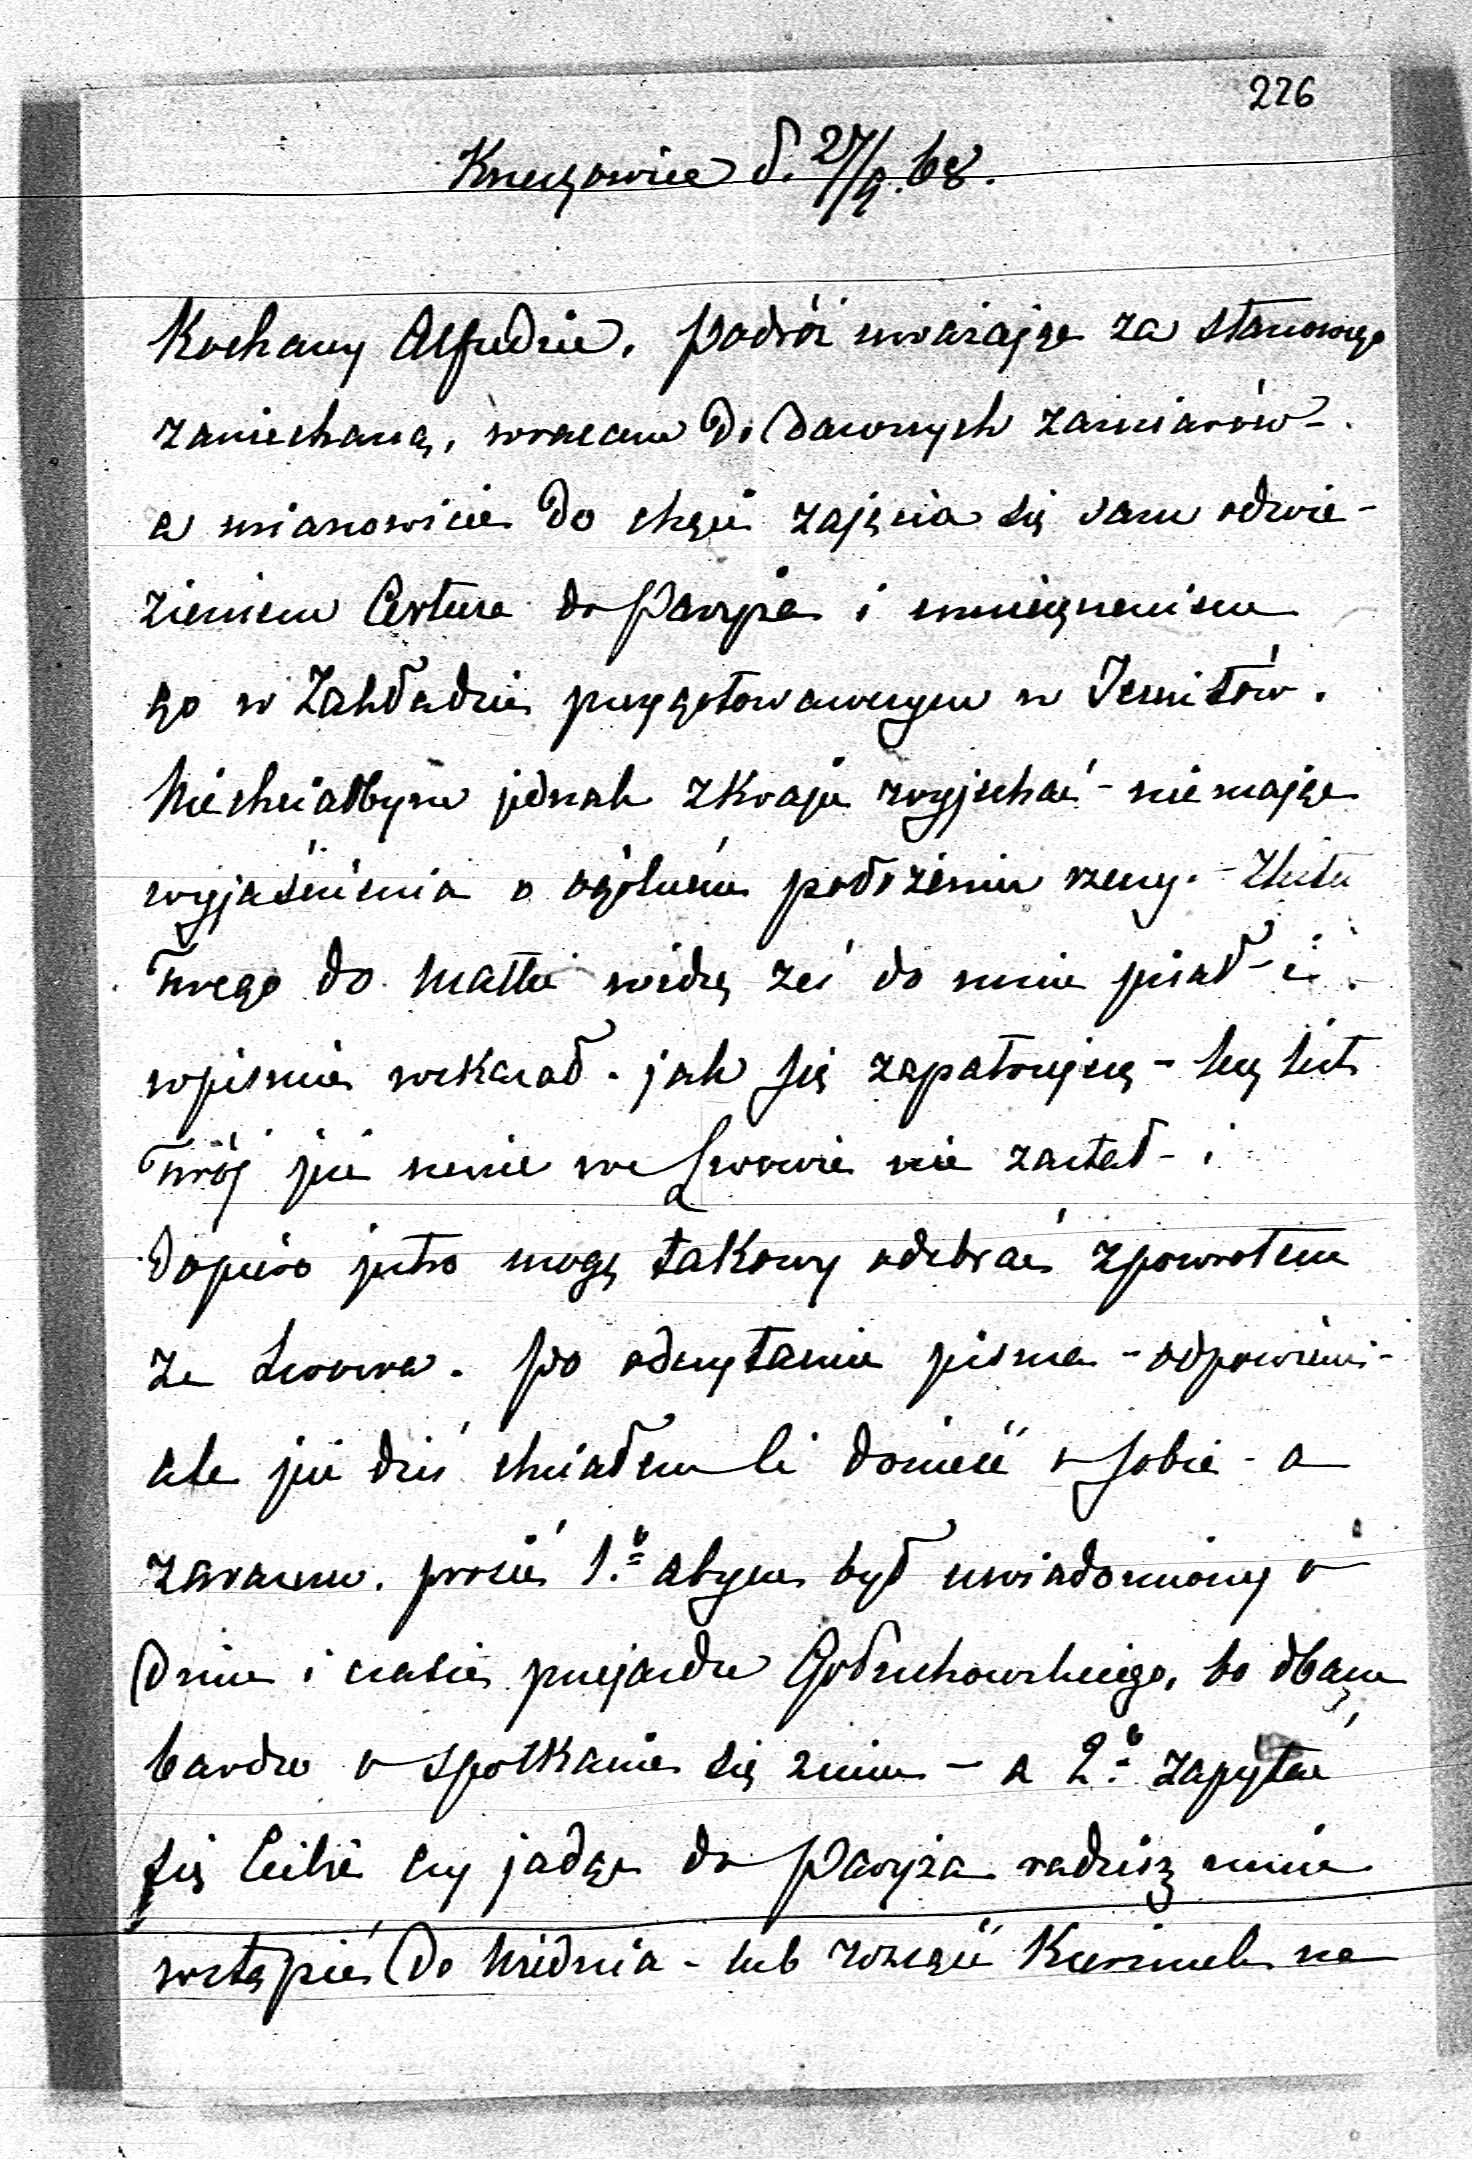 226
Krzeszowice d. 27/9. 68.
Kochany Alfredzie. Podróż uważając za stanowczo
zaniechaną, wracam do dawnych zamiarów -
a mianowicie do chęci zajęcia się sam odwie-
zieniem Artura do Paryża i umieszczeniem
go w Zakładzie przygotowawczym u Jezuitów.
Niechciałbym jednak z kraju wyjechać - nie mając
wyjaśnienia o ogólném położeniu rzeczy. - Z listu
Twego do Matki widzę żeś do mnie pisał - i
w piśmie wskazał - jak się zapatrujesz - lecz list
Twój już mnie we Lwowie nie zastał - i
dopiero jutro mogę takowy odebrać z powrotem
ze Lwowa. Po odczytaniu pisma - odpowiem -
ale już dziś chciałem Ci donieść o sobie - a
zarazem prosić 1.º abym był uwiadomiony o
dniu i czasie przejazdu Gołuchowskiego, bo dbam
bardzo o spotkanie się z nim - a 2.º zapytać
się Ciebie czy jadąc do Paryża radzisz mnie
wstąpić do Wiednia - lub zwrócić kierunek na